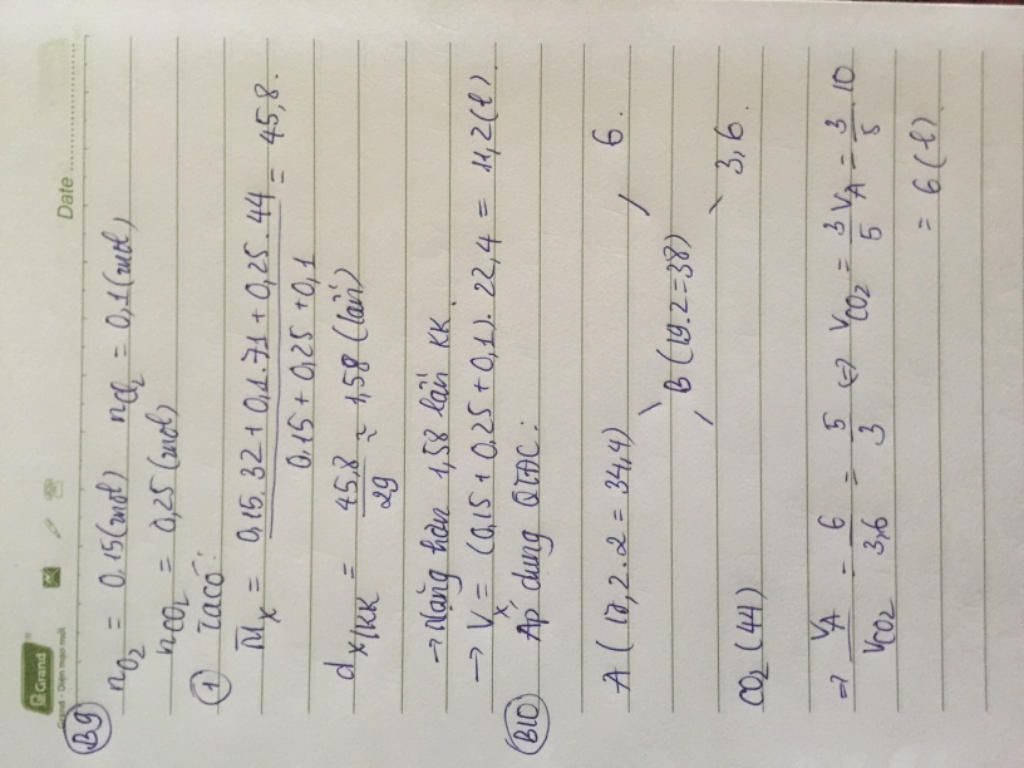 Grand
Grand - Diện mạo mới
Date
B9
n_O2 = 0,15(mol) n_Cl2 = 0,1(mol)
n_CO2 = 0,25(mol)
1 Ta có:
M̄_X = (0,15.32 + 0,1.71 + 0,25.44)/(0,15 + 0,25 + 0,1) = 45,8.
d_X/KK = 45,8/29 ≈ 1,58 (lần)
→ Nặng hơn 1,58 lần KK
→ V_X = (0,15 + 0,25 + 0,1). 22,4 = 11,2(l).
B10 Áp dụng QTĐC:
A (17,2.2 = 34,4) 6.
B (19.2=38)
CO2 (44) 3,6.
⇒ V_A/V_CO2 = 6/3,6 = 5/3 ⇔ V_CO2 = 3V_A/5 = 3/5 .10
= 6(l)